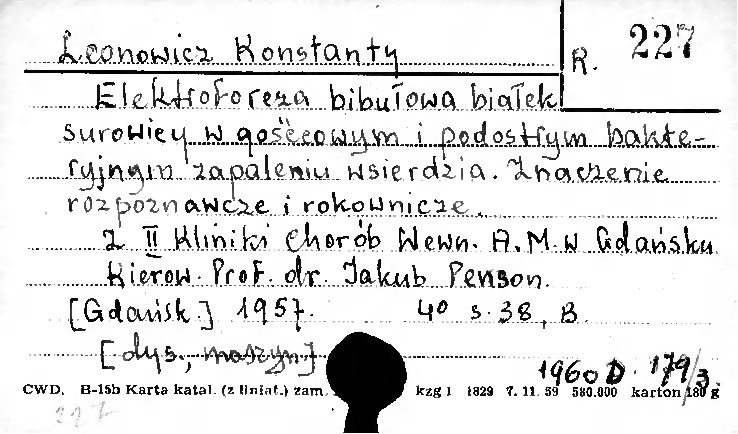 Leonowicz Konstanty
R. 227
Elektroforeza bibułowa białek
surowicy w gośćcowym i podostrym bakte-
ryjnym zapaleniu wsierdzia. Znaczenie
rozpoznawcze i rokownicze.
Z II Kliniki Chorób Wewn. A.M. w Gdańsku
Kierow. Prof. dr. Jakub Penson.
[Gdańsk.] 1957. 4° s. 38, B.
[dys., maszyn]
1960 D. 179/3.
CWD. B-15b Karta katal. (z liniat.) zam. kzg 1 1829 7. 11. 59 580.000 karton 180 g
227